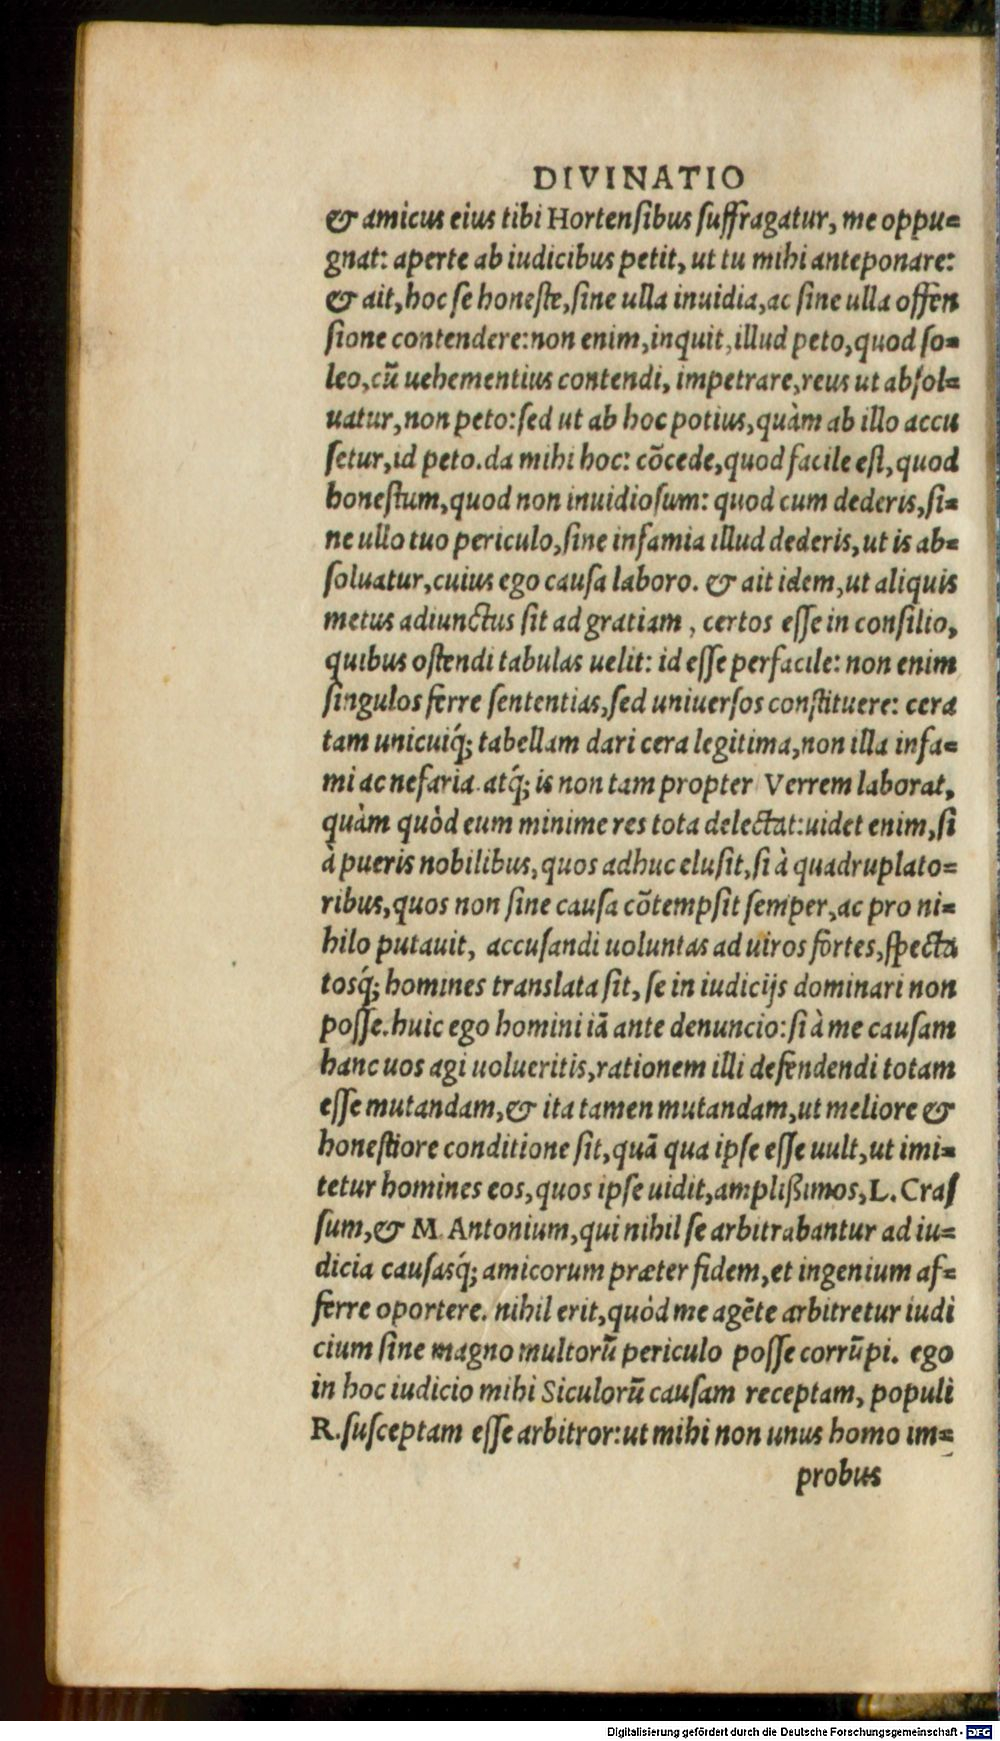 DIVINATIO
& amicus eius tibi Hortensibus suffragatur, me oppu-
gnat: aperte ab iudicibus petit, ut tu mihi anteponare:
& ait, hoc se honeste, sine ulla inuidia, ac sine ulla offen
sione contendere: non enim, inquit, illud peto, quod so-
leo, cū uehementius contendi, impetrare, reus ut absol-
uatur, non peto: sed ut ab hoc potius, quàm ab illo accu
setur, id peto. da mihi hoc: cōcede, quod facile est, quod
honestum, quod non inuidiosum: quod cum dederis, si-
ne ullo tuo periculo, sine infamia illud dederis, ut is ab-
soluatur, cuius ego causa laboro. & ait idem, ut aliquis
metus adiunctus sit ad gratiam, certos esse in consilio,
quibus ostendi tabulas uelit: id esse perfacile: non enim
singulos ferre sententias, sed uniuersos constituere: cera
tam unicuiq́; tabellam dari cera legitima, non illa infa-
mi ac nefaria. atq́; is non tam propter Verrem laborat,
quàm quòd eum minime res tota delectat: uidet enim, si
à pueris nobilibus, quos adhuc elusit, si à quadruplato-
ribus, quos non sine causa cōtempsit semper, ac pro ni-
hilo putauit, accusandi uoluntas ad uiros fortes, specta
tosq́; homines translata sit, se in iudicijs dominari non
posse. huic ego homini iā ante denuncio: si à me causam
hanc uos agi uolueritis, rationem illi defendendi totam
esse mutandam, & ita tamen mutandam, ut meliore &
honestiore conditione sit, quā qua ipse esse uult, ut imi-
tetur homines eos, quos ipse uidit, amplißimos, L. Cras
sum, & M. Antonium, qui nihil se arbitrabantur ad iu-
dicia causasq́; amicorum præter fidem, et ingenium af-
ferre oportere. nihil erit, quòd me agēte arbitretur iudi
cium sine magno multorū periculo posse corrūpi. ego
in hoc iudicio mihi Siculorū causam receptam, populi
R. susceptam esse arbitror: ut mihi non unus homo im-
probus
Digitalisierung gefördert durch die Deutsche Forschungsgemeinschaft - DFG